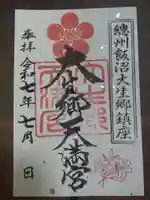 總州飯沼大生郷鎮座
大生郷天満宮
奉拝 令和七年七月 日